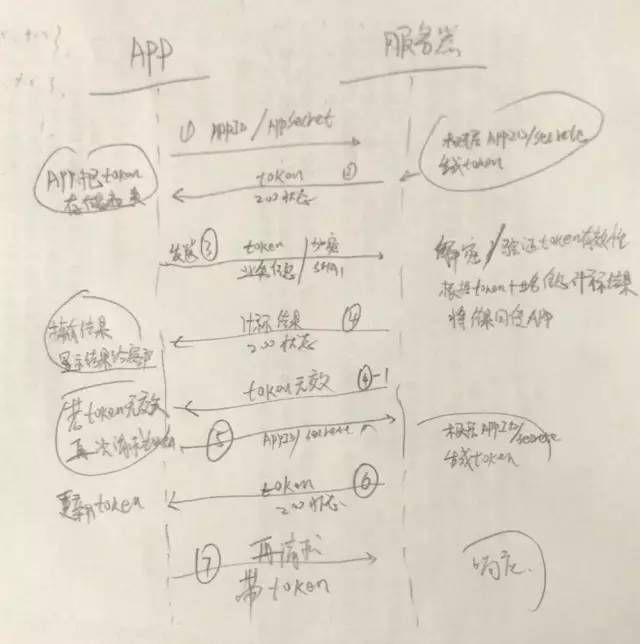 APP
服务器
① APPID/Appsecret
根据 APPID/secrete
生成token
token ②
200状态
APP把token
存储起来
发送 ③ token
业务信息
解密/验证token有效性
根据token+业务信息计算结果
将结果回使APP
计算结果 ④
200状态
接收结果
显示结果给客户
token无效 ④-1
若token无效
再次请求token
⑤ APPID/secrete
根据APPID/secrete
生成token
token ⑥
200状态
更新token
⑦ 再请求
带token
响应